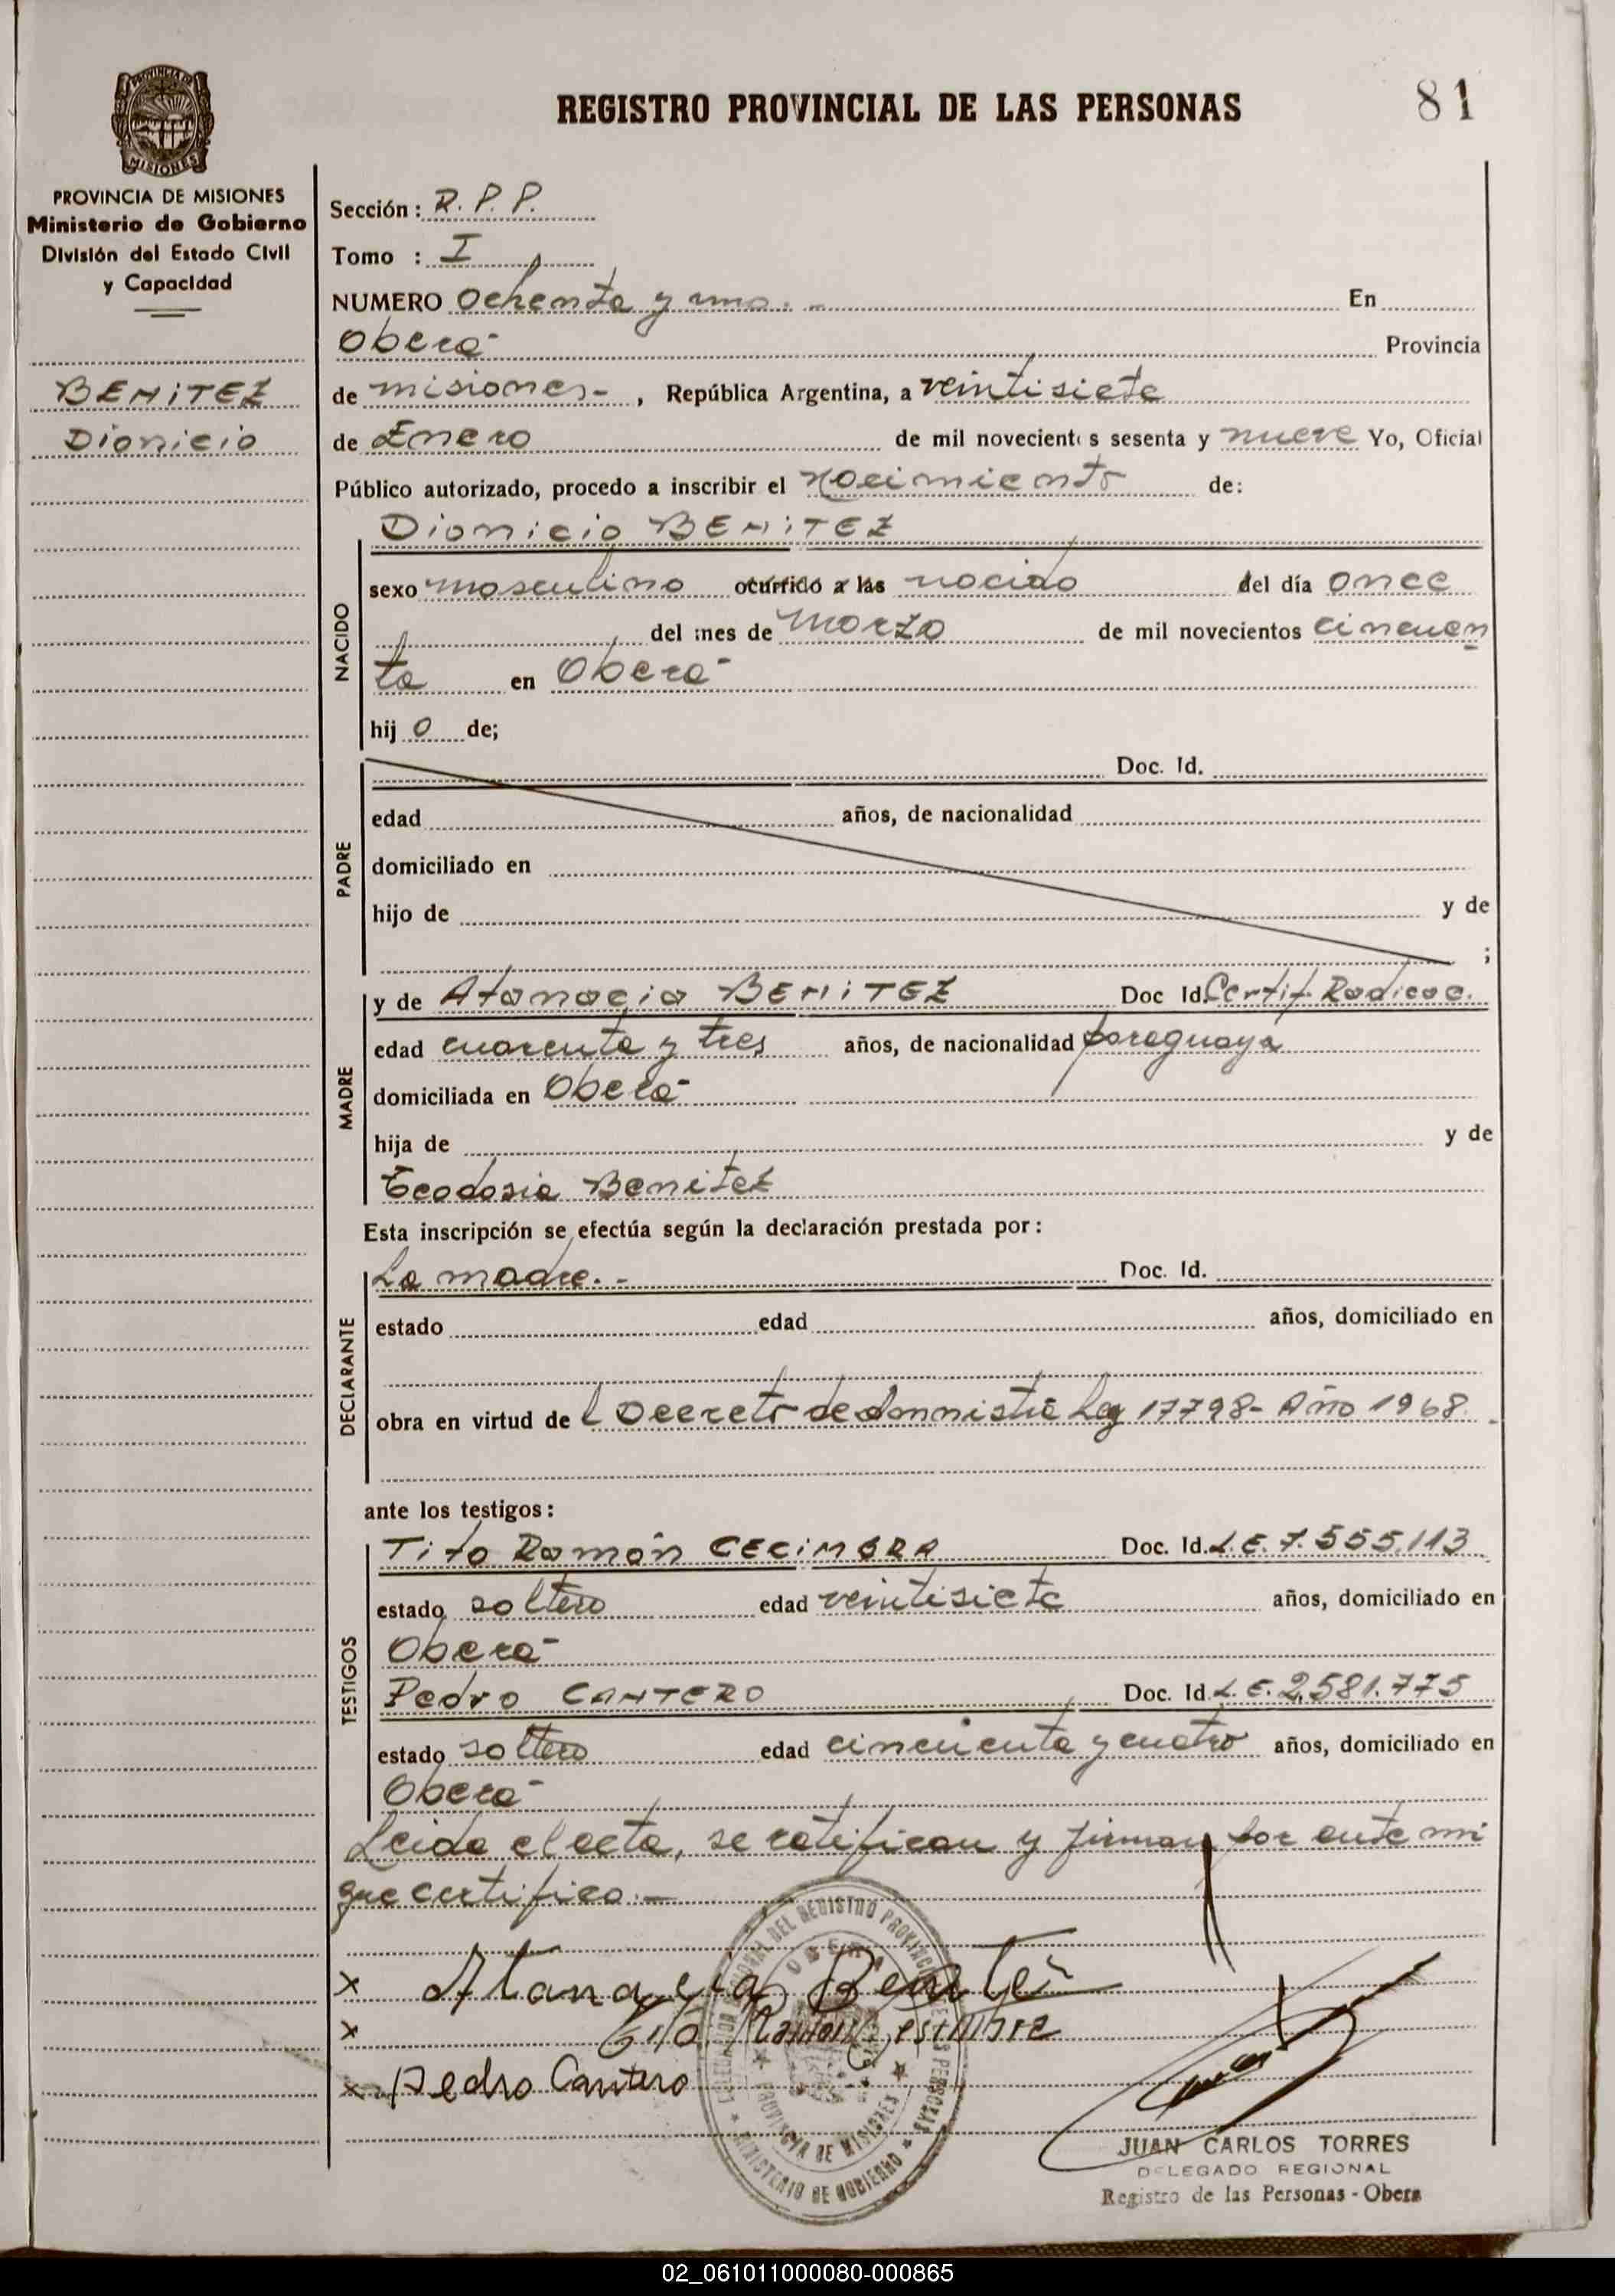 REGISTRO PROVINCIAL DE LAS PERSONAS
81
PROVINCIA DE MISIONES
PROVINCIA DE MISIONES
Ministerio de Gobierno
División del Estado Civil
y Capacidad
BENITEZ
Dionicio
Sección: R. P. P.
Tomo : I
NUMERO Ochenta y uno. - En
Oberá Provincia
de misiones- , República Argentina, a veintisiete
de Enero de mil novecientos sesenta y nueve Yo, Oficial
Público autorizado, procedo a inscribir el nacimiento de:
Dionicio BENITEZ
NACIDO
sexo masculino ocurrido a las nacido del día once
del mes de marzo de mil novecientos cincuen
ta en Oberá
hij o de;
PADRE
Doc. Id.
edad años, de nacionalidad
domiciliado en
hijo de y de
;
MADRE
y de Atanacia BENITEZ Doc Id. Certif. Radicac.
edad cuarenta y tres años, de nacionalidad paraguaya
domiciliada en Oberá
hija de y de
Teodosia Benitez
Esta inscripción se efectúa según la declaración prestada por:
DECLARANTE
La madre. - Doc. Id.
estado edad años, domiciliado en
obra en virtud de l Decreto de Amnistia Ley 17798- Año 1968.
ante los testigos:
TESTIGOS
Tito Ramón CECIMBRA Doc. Id. L.E. 7.555.113
estado soltero edad veintisiete años, domiciliado en
Oberá
Pedro CANTERO Doc. Id. L.E. 2.581.775
estado soltero edad cincuenta y cuatro años, domiciliado en
Oberá
Leida el acta, se ratifican y firman por ante mi
que certifico.-
x Atanacia Benitez
x Tito Ramon
x Pedro Cantero
REGISTRO PROVINCIAL DE LAS PERSONAS
PROVINCIA DE MISIONES
MINISTERIO DE GOBIERNO
JUAN CARLOS TORRES
DELEGADO REGIONAL
Registro de las Personas - Obera
02_061011000080-000865